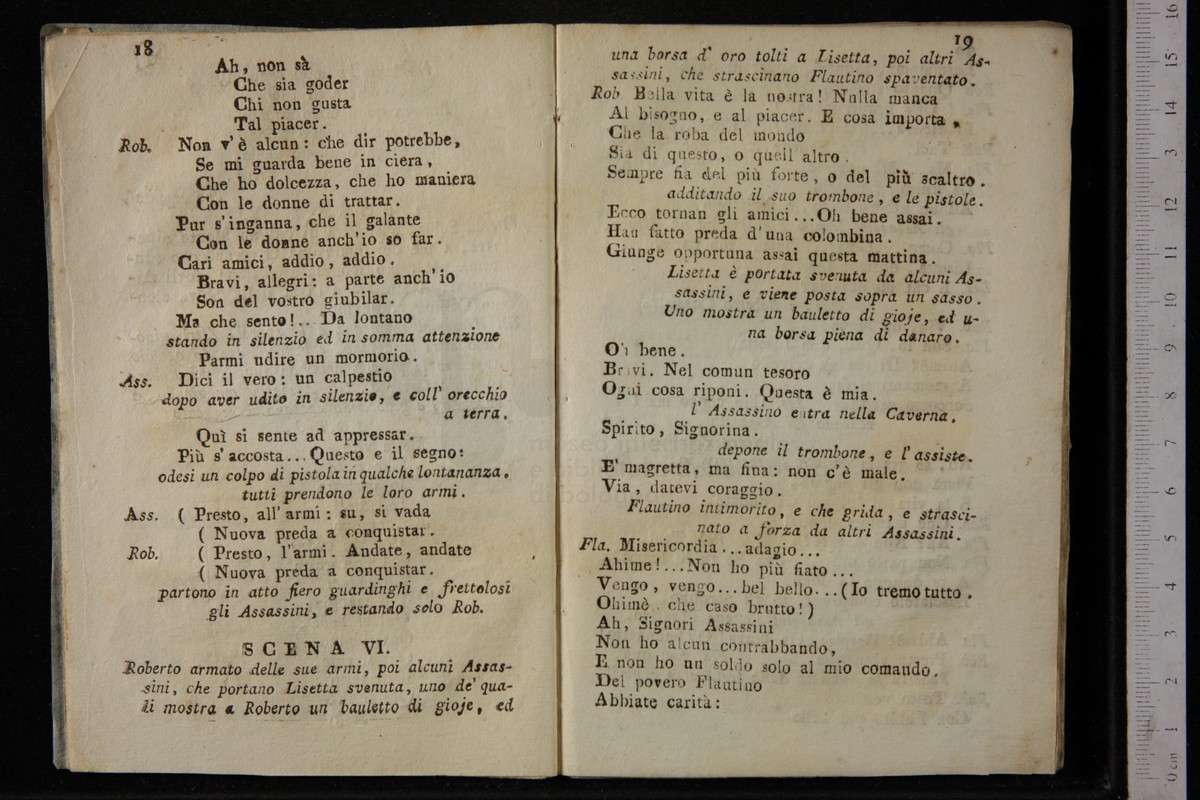 18
Ah, non sà
Che sia goder
Chi non gusta
Tal piacer.
Rob. Non v'è alcun: che dir potrebbe,
Se mi guarda bene in ciera,
Che ho dolcezza, che ho maniera
Con le donne di trattar.
Pur s'inganna, che il galante
Con le donne anch'io so far.
Cari amici, addio, addio.
Bravi, allegri: a parte anch'io
Son del vostro giubilar.
Ma che sento!.. Da lontano
stando in silenzio ed in somma attenzione
Parmi udire un mormorio.
Ass. Dici il vero: un calpestio
dopo aver udito in silenzio, e coll' orecchio
a terra.
Quì si sente ad appressar.
Più s'accosta...Questo e il segno:
odesi un colpo di pistola in qualche lontananza,
tutti prendono le loro armi.
Ass. ( Presto, all'armi: su, si vada
( Nuova preda a conquistar.
Rob. ( Presto, l'armi. Andate, andate
( Nuova preda a conquistar.
partono in atto fiero guardinghi e frettolosi
gli Assassini, e restando solo Rob.
SCENA VI.
Roberto armato delle sue armi, poi alcuni Assas-
sini, che portano Lisetta svenuta, uno de' qua-
li mostra a Roberto un bauletto di gioje, ed
19
una borsa d' oro tolti a Lisetta, poi altri As-
sassini, che strascinano Flautino spaventato.
Rob Bella vita è la nostra! Nulla manca
Al bisogno, e al piacer. E cosa importa,
Che la roba del mondo
Sia di questo, o quell altro.
Sempre fia del più forte, o del più scaltro.
additando il suo trombone, e le pistole.
Ecco tornan gli amici...Oh bene assai.
Han fatto preda d'una colombina.
Giunge opportuna assai questa mattina.
Lisetta è portata svenuta da alcuni As-
sassini, e viene posta sopra un sasso.
Uno mostra un bauletto di gioje, ed u-
na borsa piena di danaro.
Oh bene.
Bravi. Nel comun tesoro
Ogni cosa riponi. Questa è mia.
l' Assassino entra nella Caverna.
Spirito, Signorina.
depone il trombone, e l'assiste.
E' magretta, ma fina: non c'è male.
Via, datevi coraggio.
Flautino intimorito, e che grida, e strasci-
nato a forza da altri Assassini.
Fla. Misericordia...adagio...
Ahime!...Non ho più fiato...
Vengo, vengo...bel bello...(Io tremo tutto.
Ohimè, che caso brutto!)
Ah, Signori Assassini
Non ho alcun contrabbando,
E non ho un soldo solo al mio comando.
Del povero Flautino
Abbiate carità:
0 cm 1 2 3 4 5 6 7 8 9 10 11 12 13 14 15 16